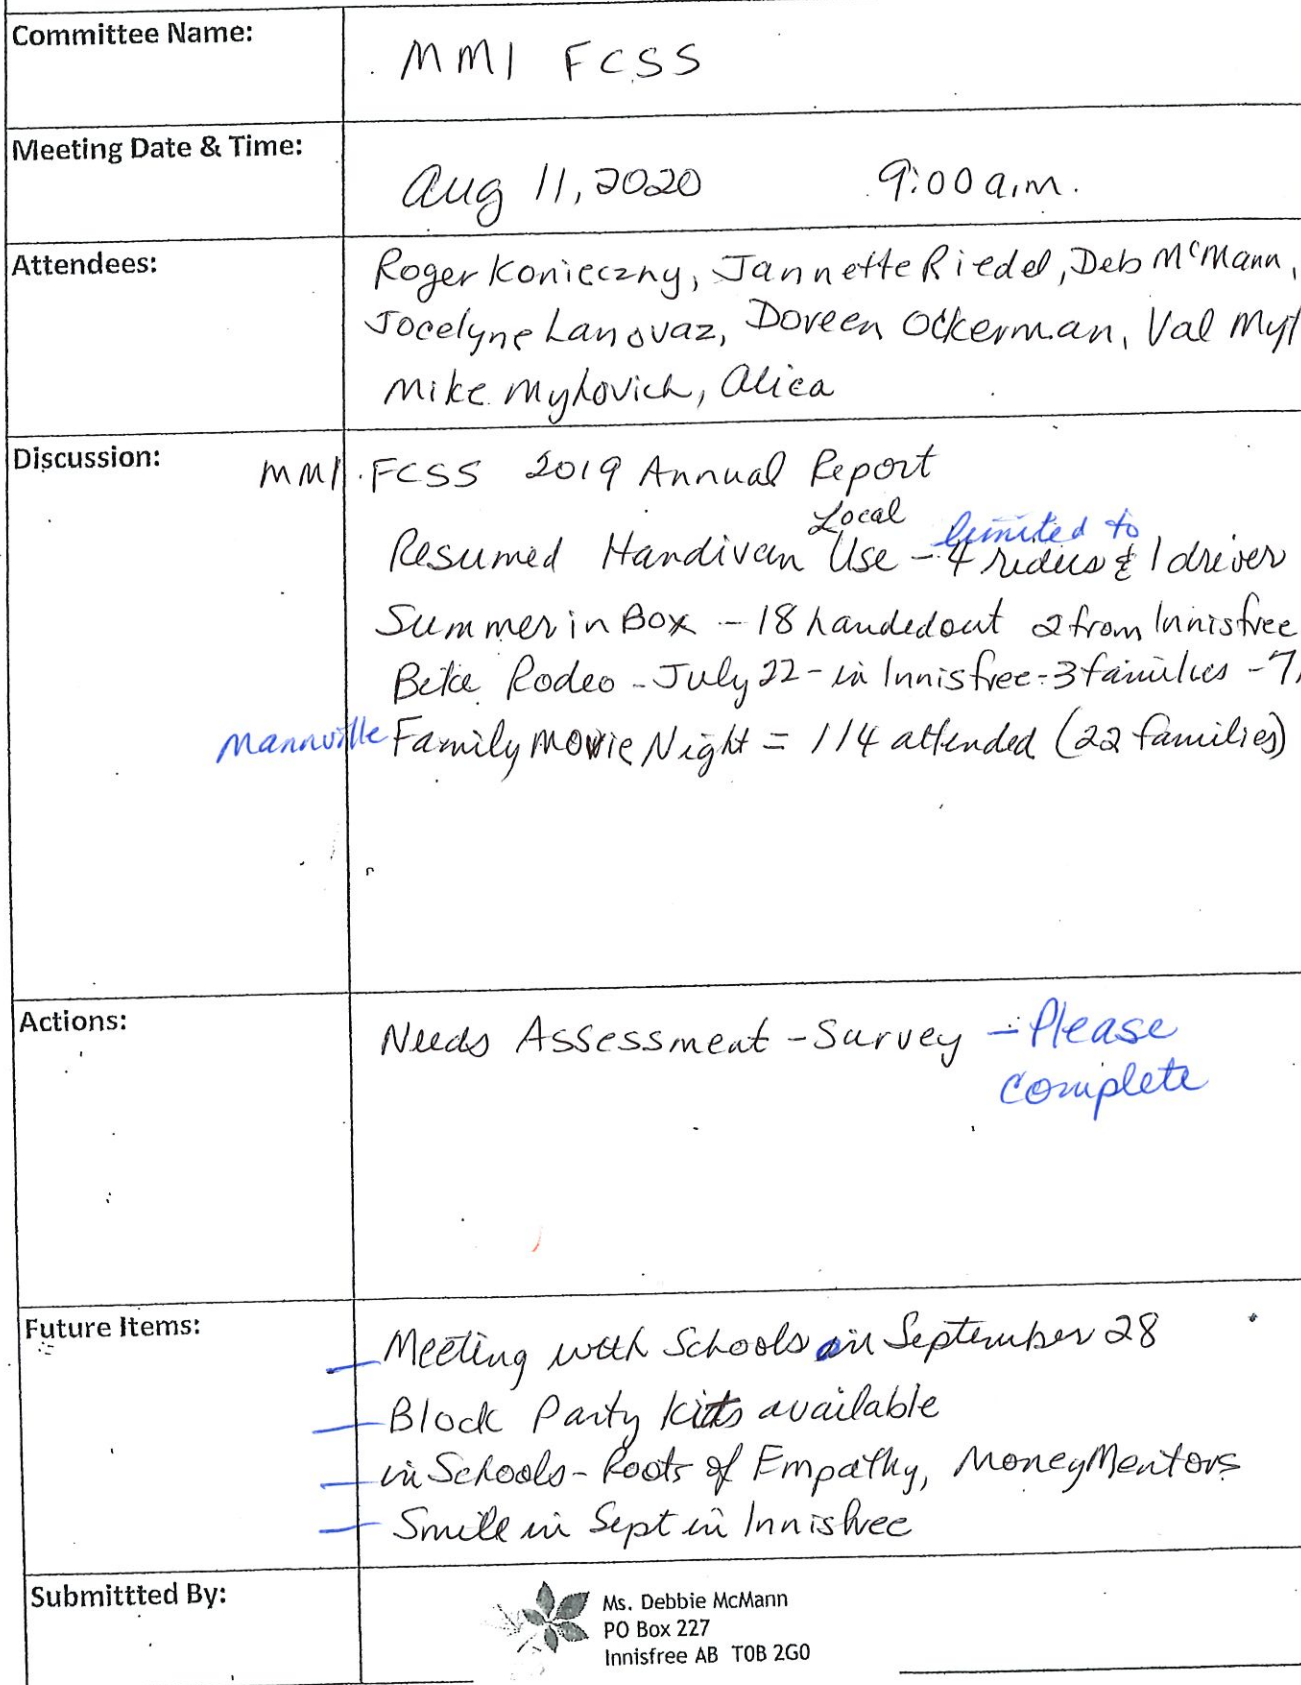 Committee Name:
MMI FCSS
Meeting Date & Time:
Aug 11, 2020 9:00 a.m.
Attendees:
Roger Konieczny, Jannette Riedel, Deb McMann,
Jocelyne Lanovaz, Doreen Ockerman, Val Myl
Mike Mykovich, Alica
Discussion:
MMI FCSS 2019 Annual Report
Local limited to
Resumed Handivan Use - 4 riders & 1 driver
Summer in Box - 18 handed out 2 from Innisfree
Bike Rodeo - July 22 - in Innisfree - 3 families - 7
Mannville Family Movie Night = 114 attended (22 families)
Actions:
Needs Assessment - Survey - Please
complete
Future Items:
- Meeting with Schools in September 28
- Block Party kits available
- in Schools - Roots of Empathy, MoneyMentors
- Smile in Sept in Innisfree
Submittted By:
Ms. Debbie McMann
PO Box 227
Innisfree AB T0B 2G0